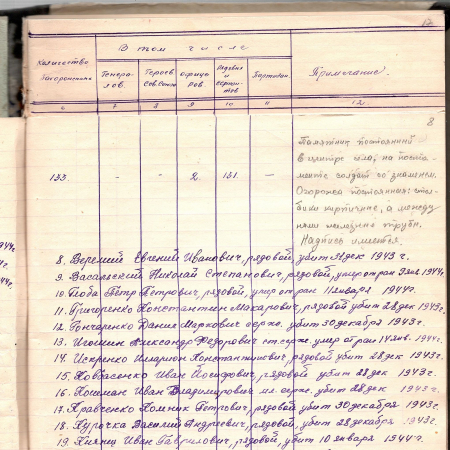 12
Количество захороненных
В том числе
Генералов.
Героев Сов. Союза
офицеров
рядовых и сержантов
Партизан.
Примечание.
6 7 8 9 10 11 12.
8
133. - - 2. 131. -
Памятник постоянный
в центре села, на поста-
менте солдат со знаменем.
Ограда постоянная: стол-
бики кирпичные, а между
ними железные трубы.
Надпись имеется.
8. Веремий Евгений Иванович, рядовой, убит дек 1943 г.
9. Васильский Николай Степанович, рядовой, умер от ран 1944г.
10. Глоба Пётр Петрович, рядовой, умер от ран 11 января 1944г.
11. Григоренко Константин Макарович, рядовой убит 28 дек 1943г.
12. Гончаренко Данил Маркович серж. убит 30 декабря 1943г.
13. Игошин Александр Федорович ст. серж. умер от ран 14 янв. 1944г.
14. Искренко Иларион Константинович, рядовой убит 28 дек 1943г.
15. Ковбасенко Иван Иосифович, рядовой убит 28 дек 1943г.
16. Кошман Иван Владимирович мл. серж. убит 28 дек 1943г.
17. Кравченко Петрович, рядовой убит 30 декабря 1943г.
18. Курочка Василий Андреевич, рядовой убит 28 декабря 1943г.
19. Кияниц Иван Гаврилович, рядовой, убит 10 января 1944г.